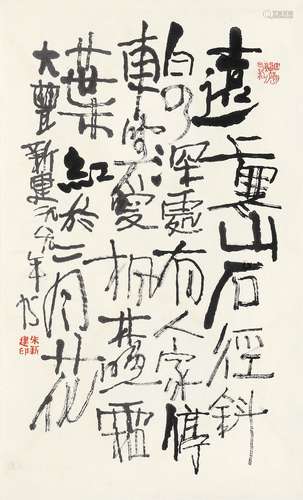 遠上寒山石徑斜
白云深處有人家停
車坐愛楓林晚霜
葉紅於二月花
大豐新建年书
朱新建印